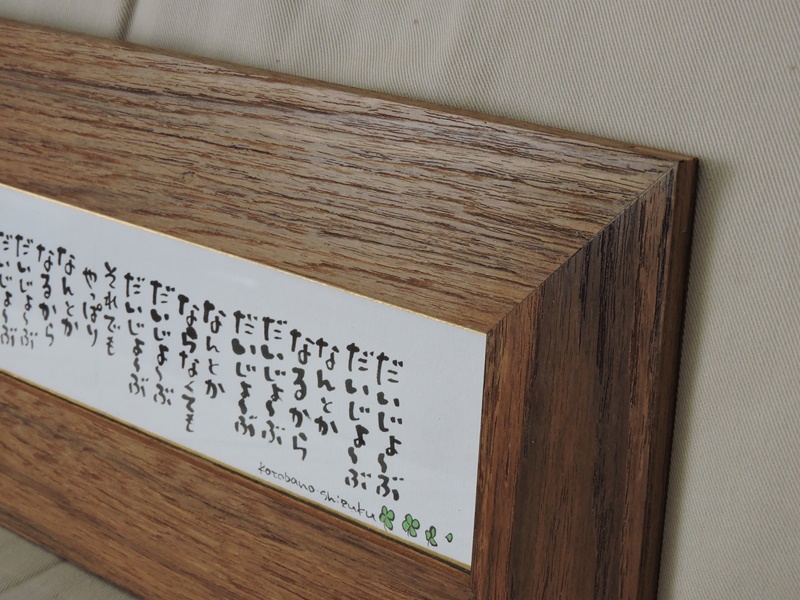 だいじょ〜ぶ
だいじょ〜ぶ
なんとか
なるから
だいじょ〜ぶ
だいじょ〜ぶ
なんとか
ならなくても
だいじょ〜ぶ
だいじょ〜ぶ
それでも
やっぱり
なんとか
なるから
だいじょ〜ぶ
だいじょ〜ぶ
kotobano-shizuku